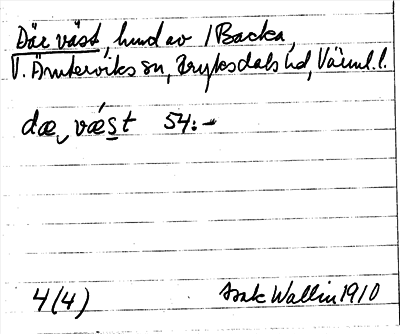 Där väst, hmd av 1 Backa,
V. Ämterviks sn, Fryksdals hd, Värml. l.
dæ‿vǽst 54:-
4(4) Isak Wallin 1910